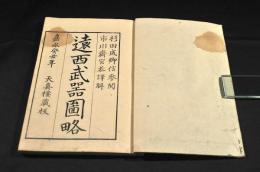 杉田成卿信参閲
市川齋宮本譯解
遠西武器圖略
嘉永癸丑年 天真樓藏板